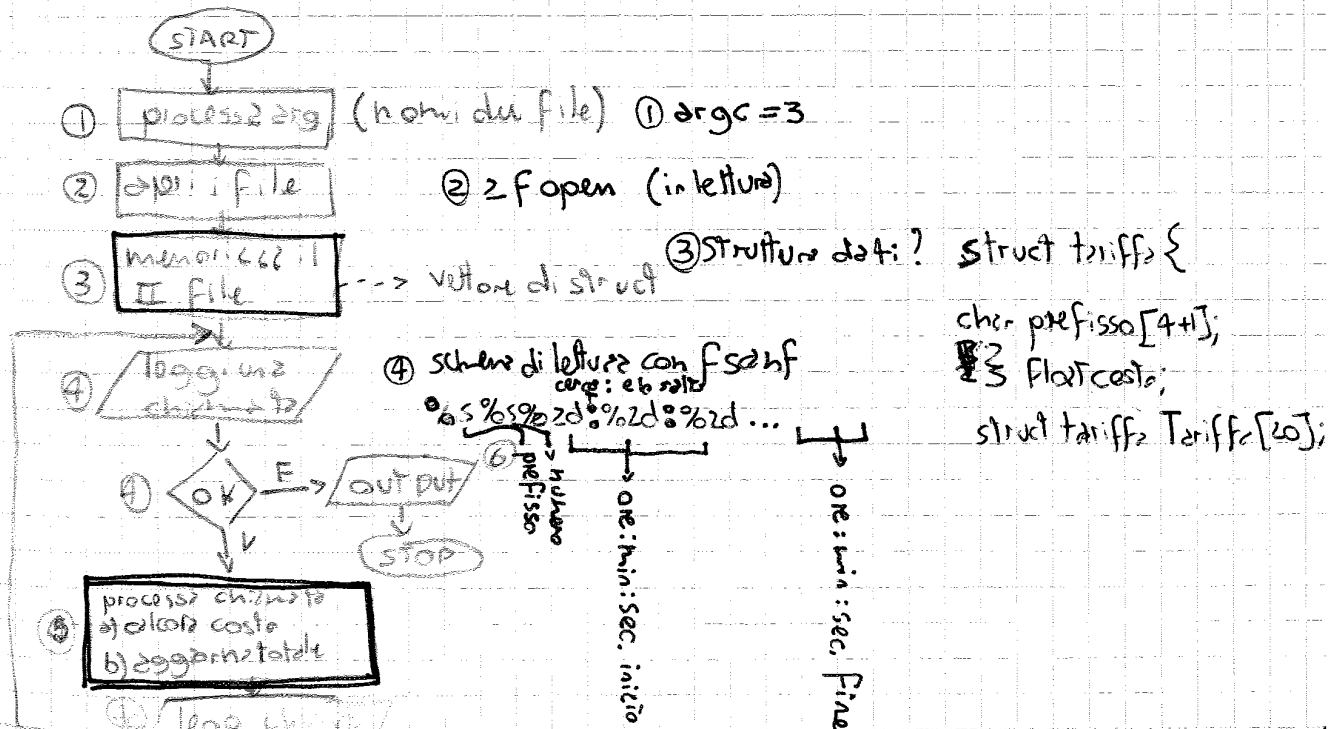 START
① processa arg (nomi dei file) ① argc = 3
② apri i file ② 2 fopen (in lettura)
③ memorizza il II file ---> vettore di struct
③ Struttura dati? struct tariffa {
char prefisso[4+1];
float costo;
struct tariffa Tariffa[20];
④ leggi una chiamata
④ schema di lettura con fscanf
cerca : e lo salta
%s%s%2d:%2d:%2d...
⑥
prefisso
numero
ore:min:sec. inizio
ore:min:sec. fine
OK
F
OUTPUT
STOP
V
⑤ processa chiamata
a) calcola costo
b) aggiorna totale